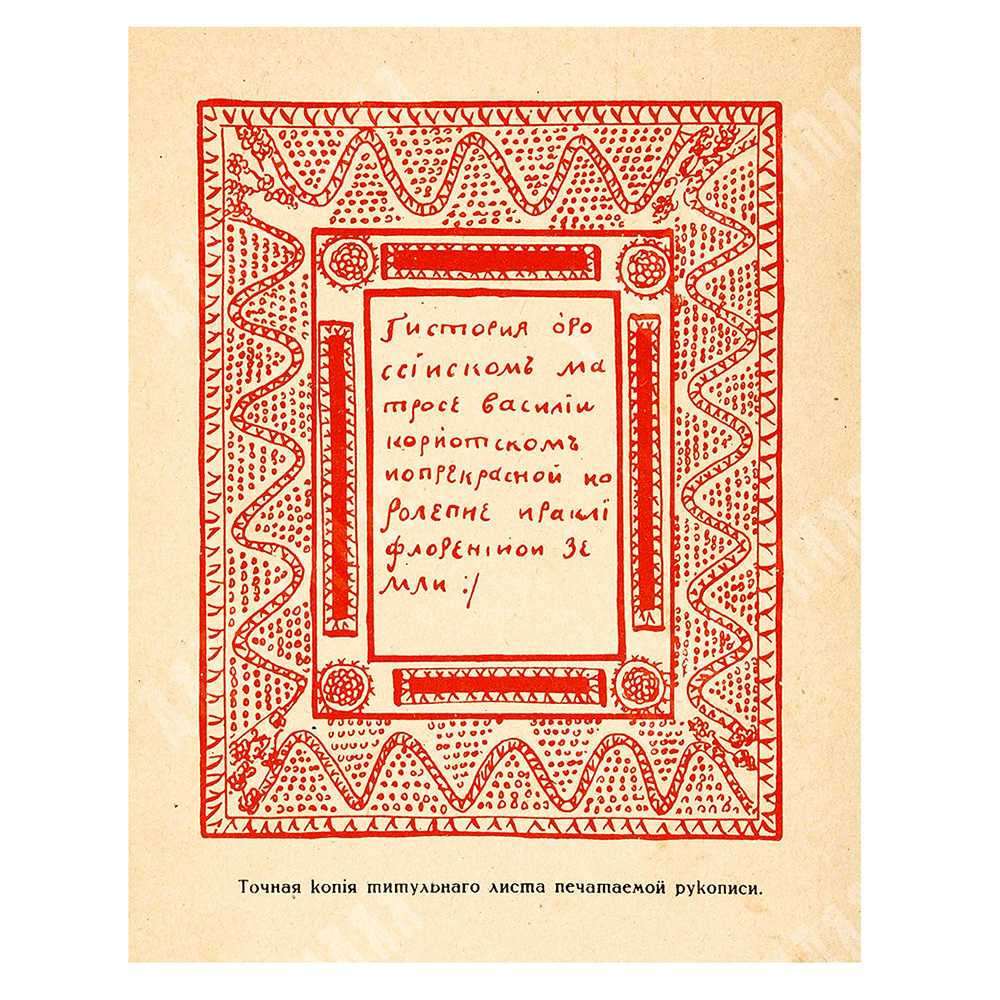 Гистория оро
ссійскомъ ма
тросе василіи
кориотскомъ
иопрекрасной ко
ролевне иракліи
флоренскои зе
мли :/
Точная копія титульнаго листа печатаемой рукописи.